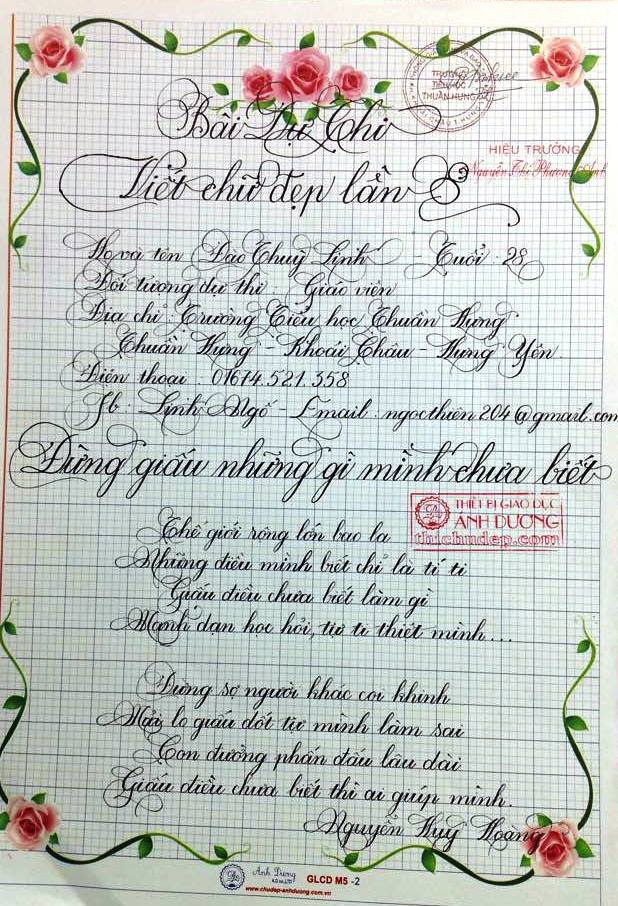 TRƯỜNG
TIỂU HỌC
THUẦN HƯNG
Bài Dự Thi
HIỆU TRƯỞNG
Nguyễn Thị Phương Anh
Viết chữ đẹp lần 8
Họ và tên Đào Thuỳ Linh - Tuổi : 28
Đối tượng dự thi : Giáo viên
Địa chỉ : Trường Tiểu học Thuần Hưng
Thuần Hưng - Khoái Châu - Hưng Yên.
Điện thoại : 01674.521.358
Fb : Linh Ngố - Email : ngocthien204@gmail.com
Đừng giấu những gì mình chưa biết
THIẾT BỊ GIÁO DỤC
ÁNH DƯƠNG
thichudep.com
Thế giới rộng lớn bao la
Những điều mình biết chỉ là tí ti
Giấu điều chưa biết làm gì
Mạnh dạn học hỏi, tự ti thiệt mình...
Đừng sợ người khác coi khinh
Mải lo giấu dốt tự mình làm sai
Con đường phấn đấu lâu dài
Giấu điều chưa biết thì ai giúp mình.
Nguyễn Huy Hoàng
Ánh Dương
GLCD M5 -2
www.chudep-anhduong.com.vn